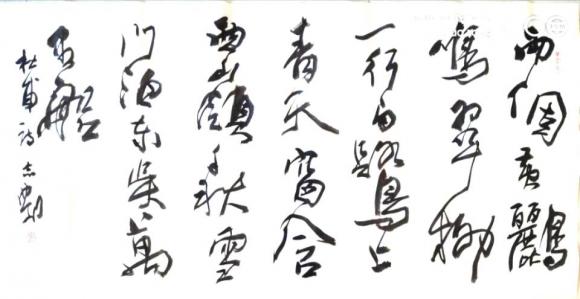 兩個黃鸝
鳴翠柳
一行白鷺上
青天窗含
西嶺千秋雪
門泊東吳萬
里船
杜甫詩